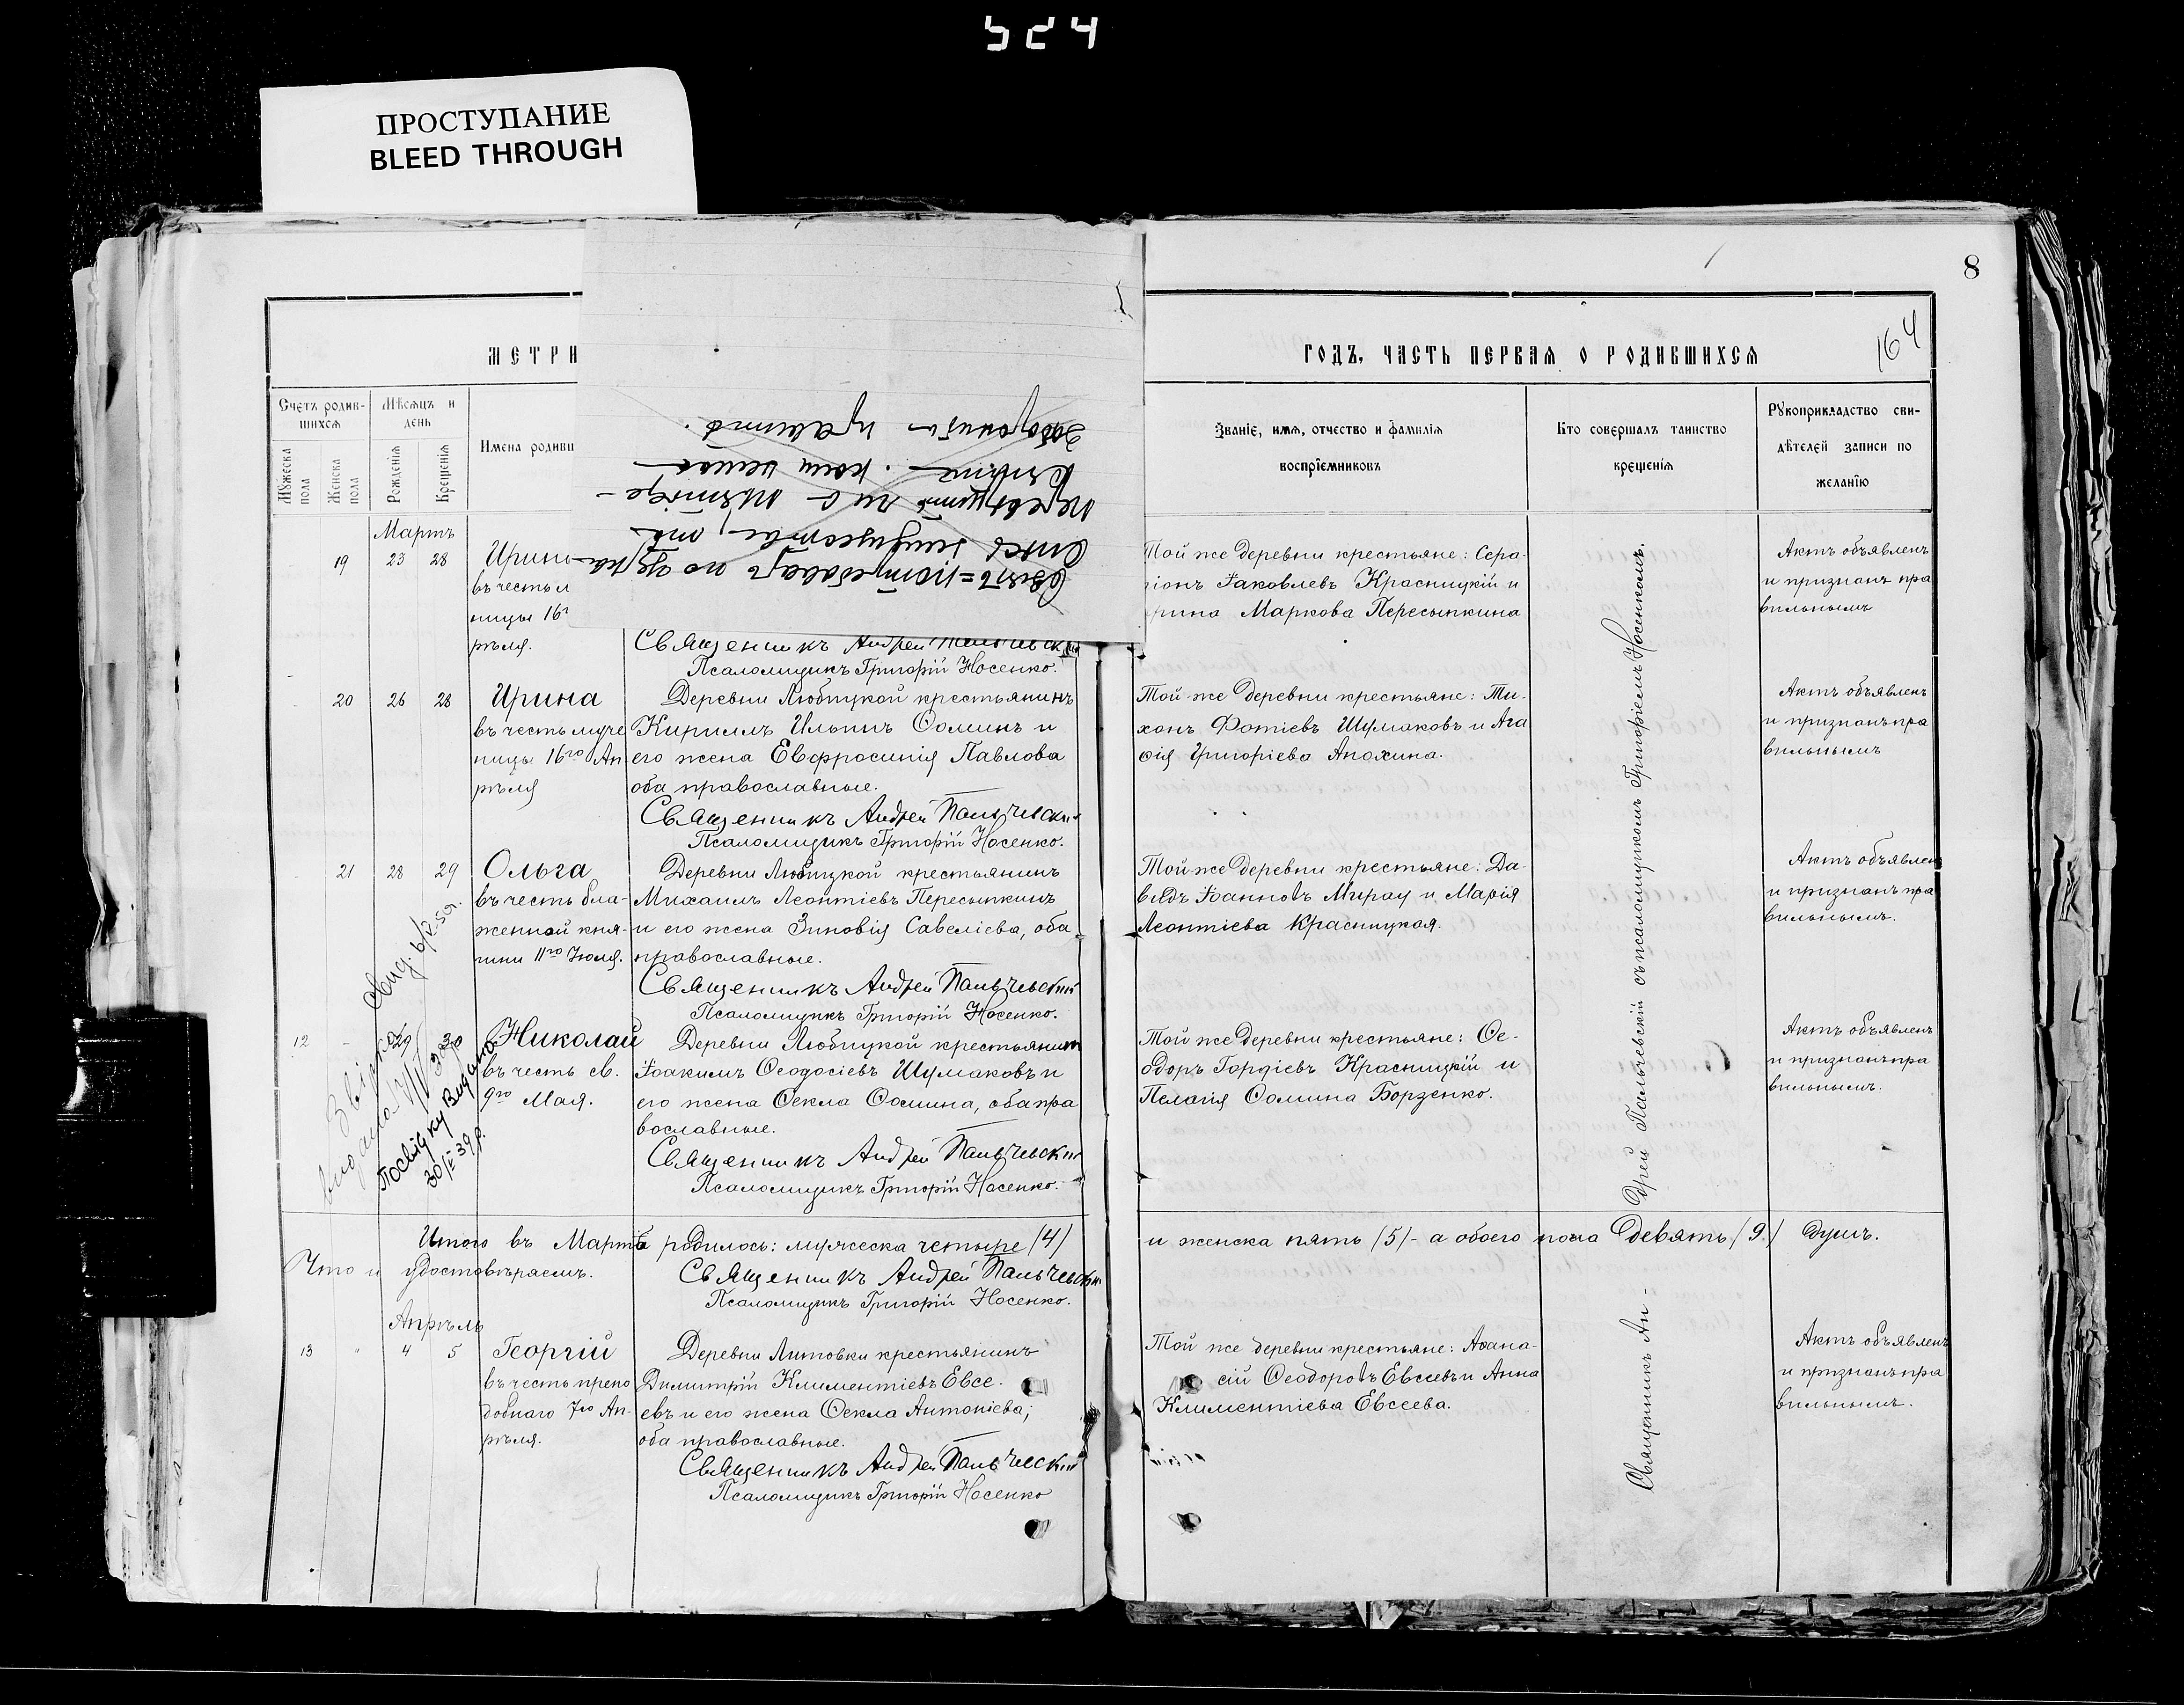 524
ПРОСТУПАНИЕ
BLEED THROUGH
8
164
МЕТРИ
ГОДЪ, ЧАСТЬ ПЕРВАЯ О РОДИВШИХСЯ
Счетъ родив-
шихся
Мѣсяцъ и
день
Мужеска
пола
Женска
пола
Рожденія
Крещенія
Имена родивш
Званіе, имя, отчество и фамилія
воспріемниковъ
Кто совершалъ таинство
крещенія
Рукоприкладство сви-
дѣтелей записи по
желанію
Мартъ
19 23 28 Ирина
въ честь м
ницы 16го
рѣля.
Священникъ Андрей Пальчевскій
Псаломщикъ Григорій Носенко.
Той же деревни крестьяне: Сера-
піонъ Іаковлевъ Красницкій и
рина Маркова Пересыпкина
Актъ объявленъ
и признанъ пра
вильнымъ
20 26 28 Ирина
въ честь муче
ницы 16го Ап-
рѣля
Деревни Любицкой крестьянинъ
Кириллъ Ильинъ Ѳоминъ и
его жена Евфросинія Павлова
оба православные.
Священникъ Андрей Пальчевскій
Псаломщикъ Григорій Носенко.
Той же деревни крестьяне: Ти-
хонъ Фотіевъ Шумаковъ и Ага
ѳія Григоріева Анохина.
Актъ объявленъ
и признанъ пра
вильнымъ
21 28 29 Ольга
въ честь бла-
женной кня-
гини 11го Іюля.
Деревни Любицкой крестьянинъ
Михаилъ Леонтіевъ Пересыпкинъ
и его жена Зиновія Савеліева, оба
православные.
Священникъ Андрей Пальчевскій
Псаломщикъ Григорій Носенко.
Той же деревни крестьяне: Да-
видъ Іоанновъ Мирау и Марія
Леонтіева Красницкая.
Актъ объявленъ
и признанъ пра
вильнымъ.
12 - 29 30 Николай
въ честь св.
9го Мая.
Деревни Любицкой крестьянинъ
Іоакимъ Ѳеодосіевъ Шумаковъ и
его жена Ѳекла Ѳомина, оба пра
вославные.
Священникъ Андрей Пальчевскій
Псаломщикъ Григорій Носенко.
Той же деревни крестьяне: Ѳе-
одоръ Гордіевъ Красницкій и
Пелагія Ѳомина Борзенко.
Актъ объявленъ
и признанъ пра
вильнымъ.
Посвідку видано
30/I 39 р.
Итого въ Мартѣ родилось: мужеска четыре (4)
и женска пять (5) - а обоего пола девять (9) душъ.
Что и удостовѣряемъ.
Священникъ Андрей Пальчевскій
Псаломщикъ Григорій Носенко.
Апрѣль
13 " 4 5 Георгій
въ честь препо
добнаго 7го Ап-
рѣля.
Деревни Литовки крестьянинъ
Димитрій Климентіевъ Евсе-
евъ и его жена Ѳекла Антоніева;
оба православные.
Священникъ Андрей Пальчевскій
Псаломщикъ Григорій Носенко
Той же деревни крестьяне: Аѳана-
сій Ѳеодоровъ Евсеевъ и Анна
Климентіева Евсеева.
Актъ объявленъ
и признанъ пра
вильнымъ.
Священникъ Ан-
дрей Пальчевскій съ псаломщикомъ Григоріемъ Носенкомъ.